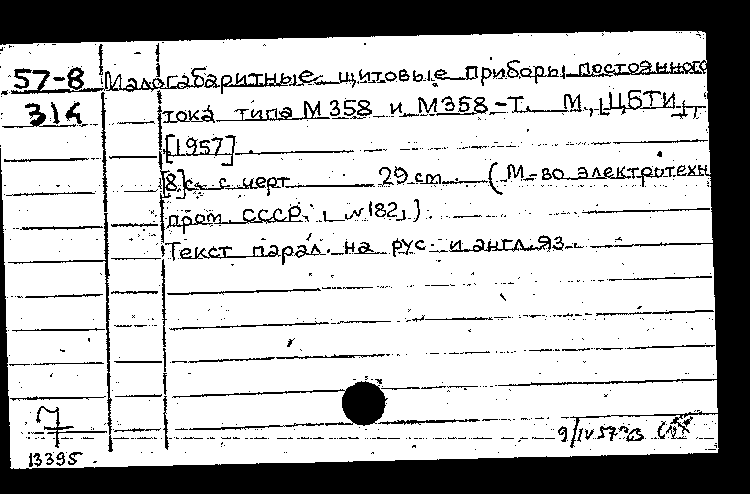 57-8 Малогабаритные щитовые приборы постоянного
314 тока типа М358 и М358-Т. М., [ЦБТИ],
[1957].
[8]с. с черт. 29 cm. (М-во электротехн
пром. СССР. №182)
Текст парал. на рус. и англ. яз.
9/IV 57
13395